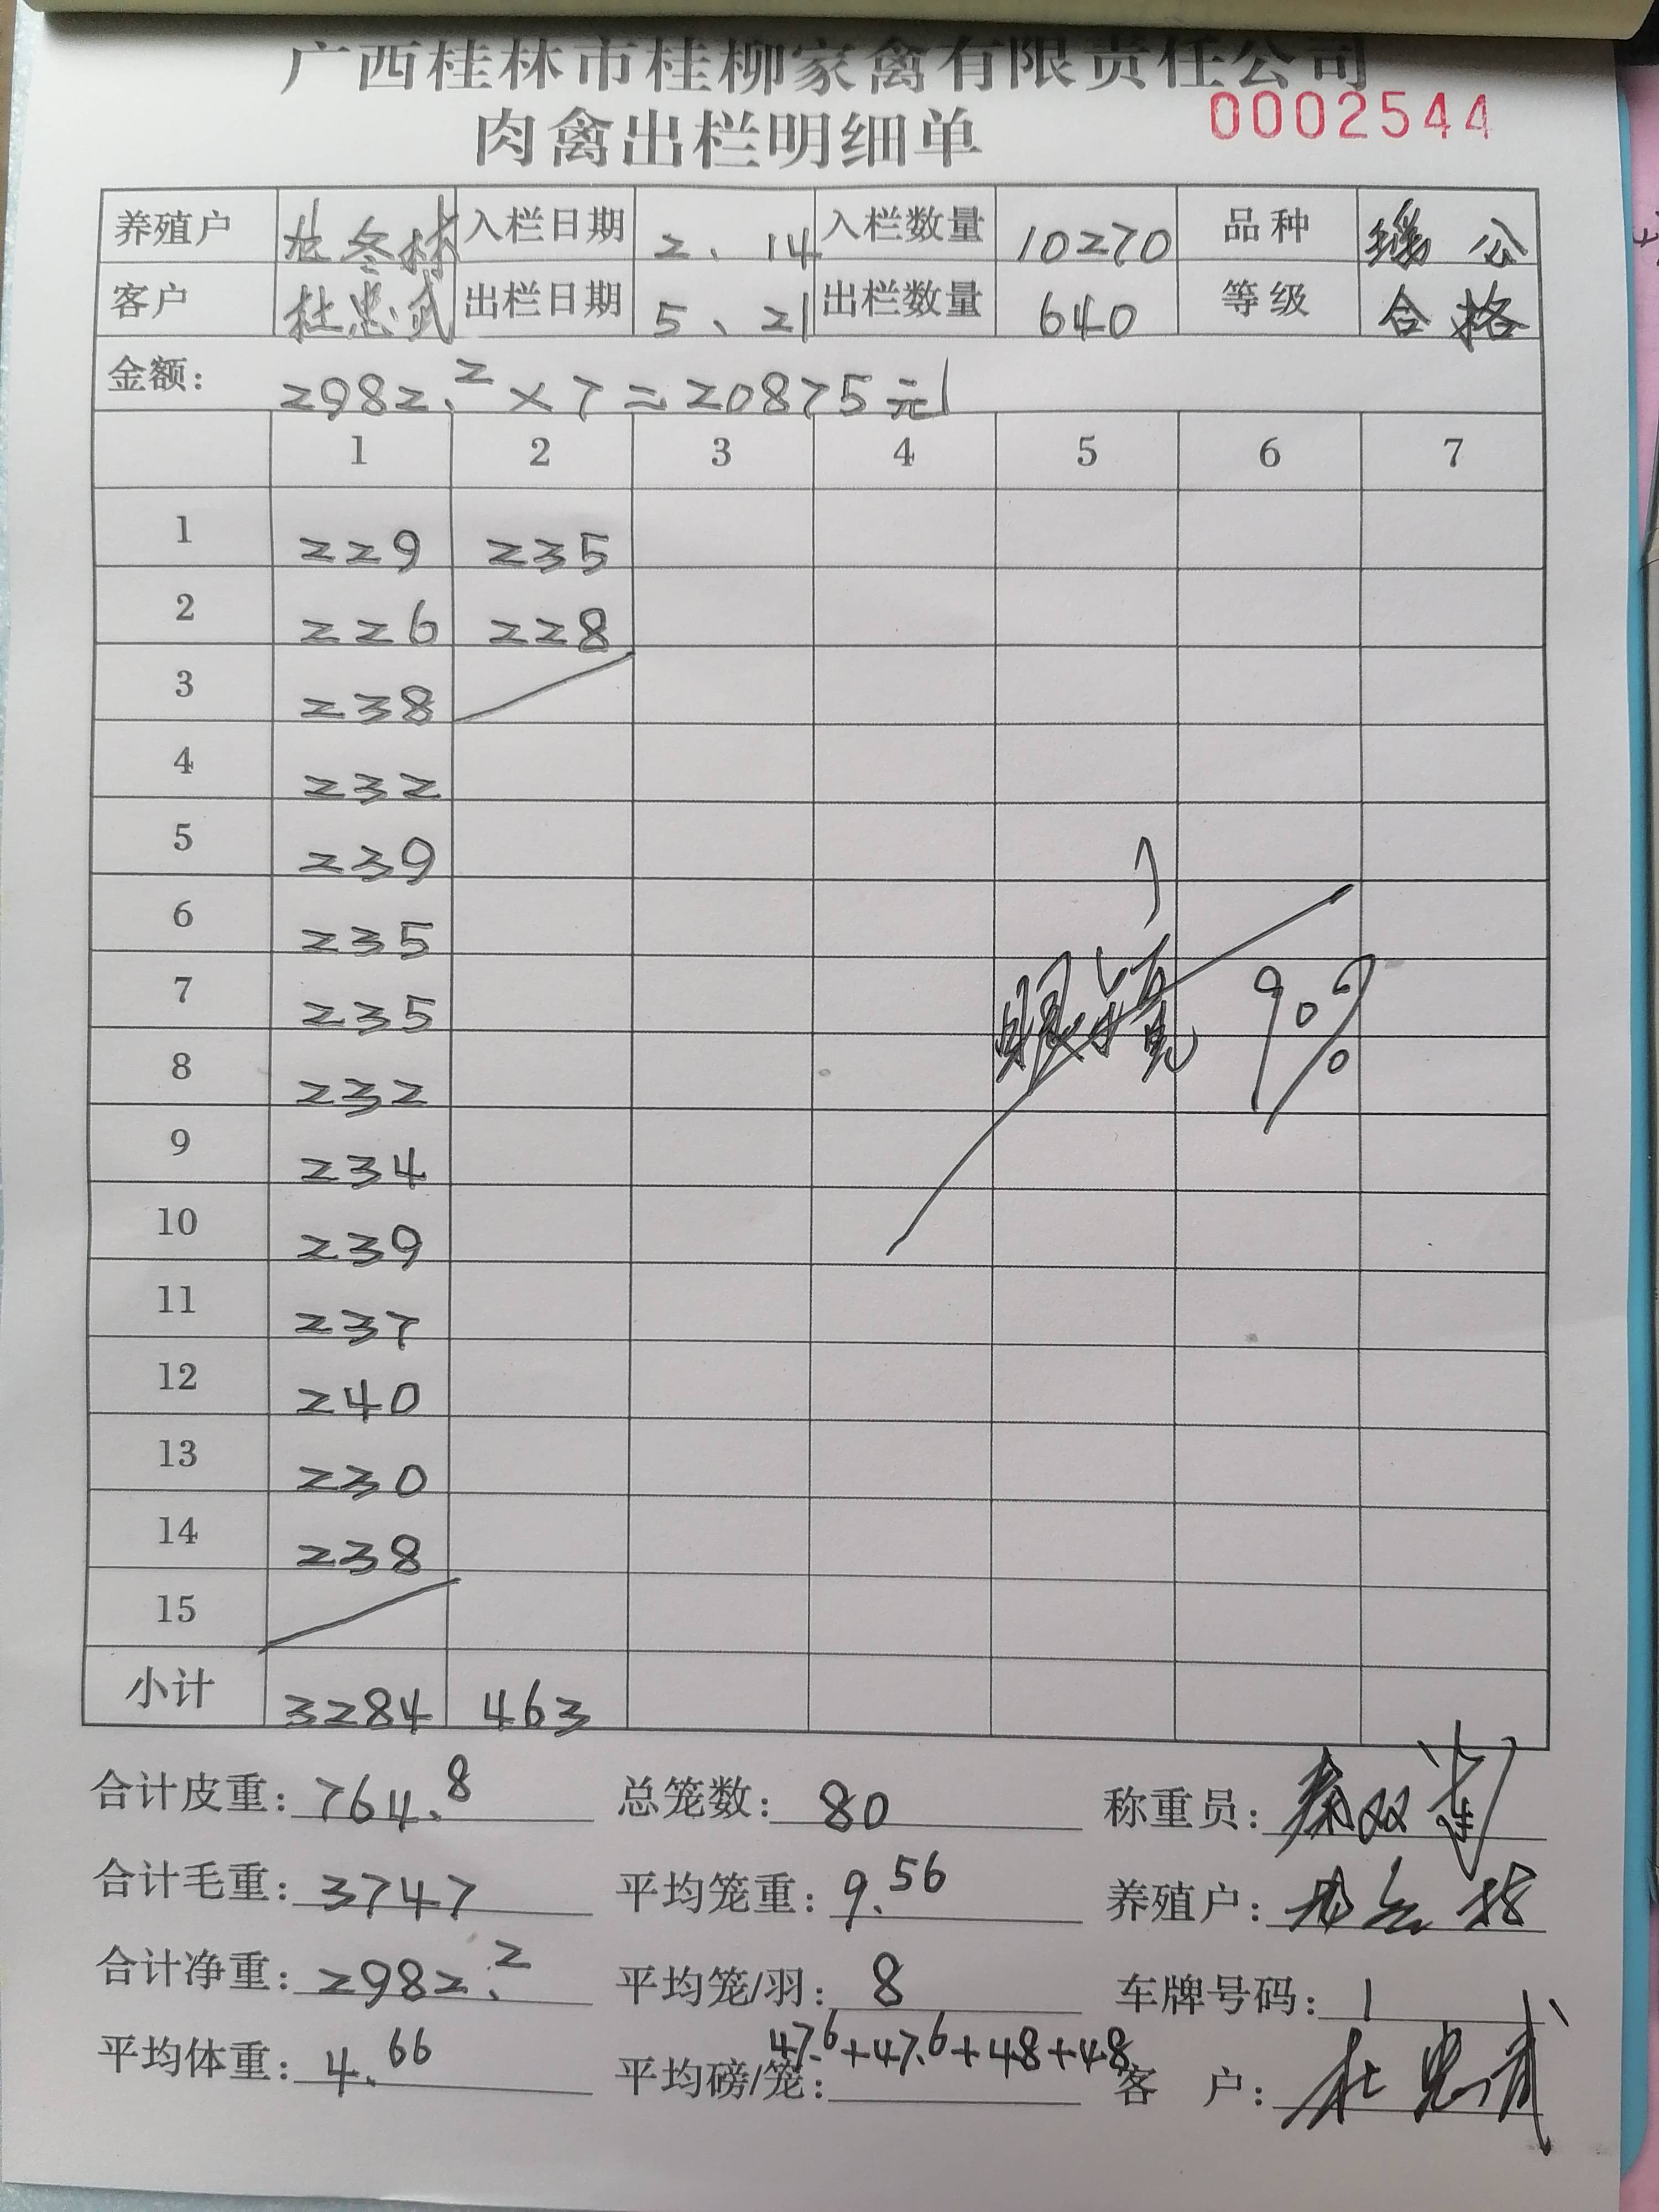 广西桂林市桂柳家禽有限责任公司
肉禽出栏明细单 0002544
养殖户 冬林 入栏日期 2、14 入栏数量 10270 品种 公
客户 杜忠武 出栏日期 5、21 出栏数量 640 等级 合格
金额: 2982.2×7=20875元
1 2 3 4 5 6 7
1 229 235
2 226 228
3 238
4 232
5 239
6 235
7 235
8 232
9 234
10 239
11 237
12 240
13 230
14 238
15
小计 3284 463
90%
合计皮重: 764.8 总笼数: 80 称重员: 秦双
合计毛重: 3747 平均笼重: 9.56 养殖户:
合计净重: 2982.2 平均笼/羽: 8 车牌号码: 1
平均体重: 4.66 平均磅/笼: 47.6+47.6+48+48 客 户: 杜忠武